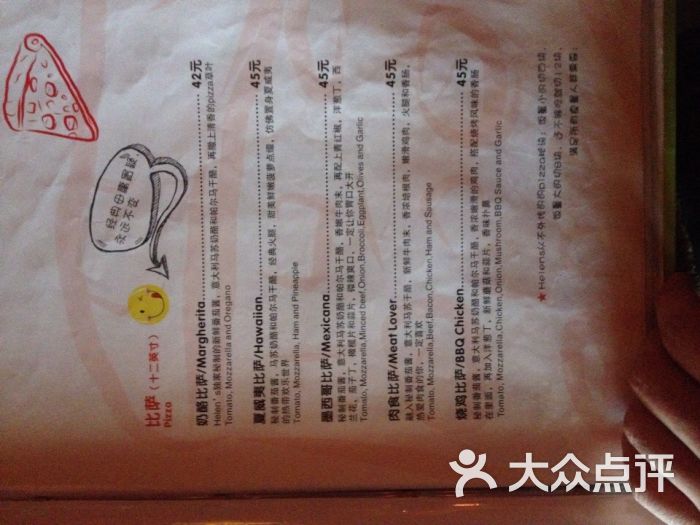 比萨 (十二英寸)
Pizza
经典由聚酷起
永远不变
奶酪比萨/Margherita 42元
Helen's独家秘制的新鲜番茄酱，意大利马苏奶酪和帕尔马干酪，再撒上清香的pizza草叶
Tomato, Mozzarella and Oregano
夏威夷比萨/Hawaiian 45元
秘制番茄酱，马苏奶酪和帕尔马干酪，经典火腿，甜美鲜嫩菠萝点缀，仿佛置身夏威夷
的热带欢乐世界
Tomato, Mozzarella, Ham and Pineapple
墨西哥比萨/Mexicana 45元
秘制番茄酱，意大利马苏奶酪和帕尔马干酪，香嫩牛肉末，再配上青红椒，洋葱丁，西
兰花，茄子丁，橄榄片和蒜片，微辣爽口，一定让你胃口大开
Tomato, Mozzarella,Minced beef,Onion,Broccoli,Eggplant,Olives and Garlic
肉食比萨/Meat Lover 45元
融入秘制番茄酱，意大利马苏干酪，新鲜牛肉末，香浓培根肉，嫩滑鸡肉，火腿和香肠，
热爱肉食的你，一定喜欢
Tomato, Mozzarella,Beef,Bacon,Chicken,Ham and Spusage
烧鸡比萨/BBQ Chicken 45元
秘制番茄酱，意大利马苏和帕尔马干酪，香浓嫩滑的鸡肉，搭配烧烤风味的香肠
在里面，再加入洋葱丁，新鲜蘑菇和蒜片，香味扑鼻
Tomato, Mozzarella,Chicken,Onion,Mushroom,BBQ Sauce and Garlic
★Helens从不外传的的pizza秘诀:
大众点评